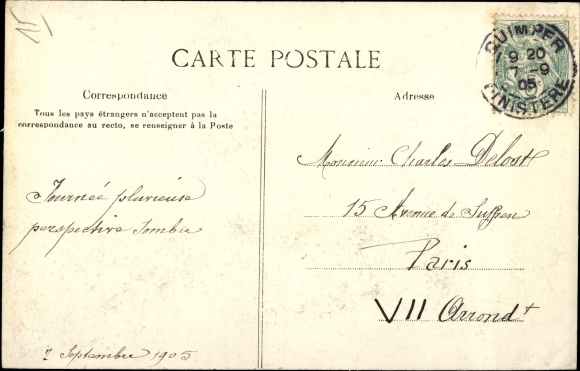 15
CARTE POSTALE
QUIMPER
9 20
7 - 9
05
FINISTERE
Correspondance
Tous les pays étrangers n'acceptent pas la
correspondance au recto, se renseigner à la Poste
Adresse
Journée pluvieuse
perspective Sombre
7 Septembre 1905
Monsieur Charles Delost
15 Avenue de Suffren
Paris
VII Arrondt